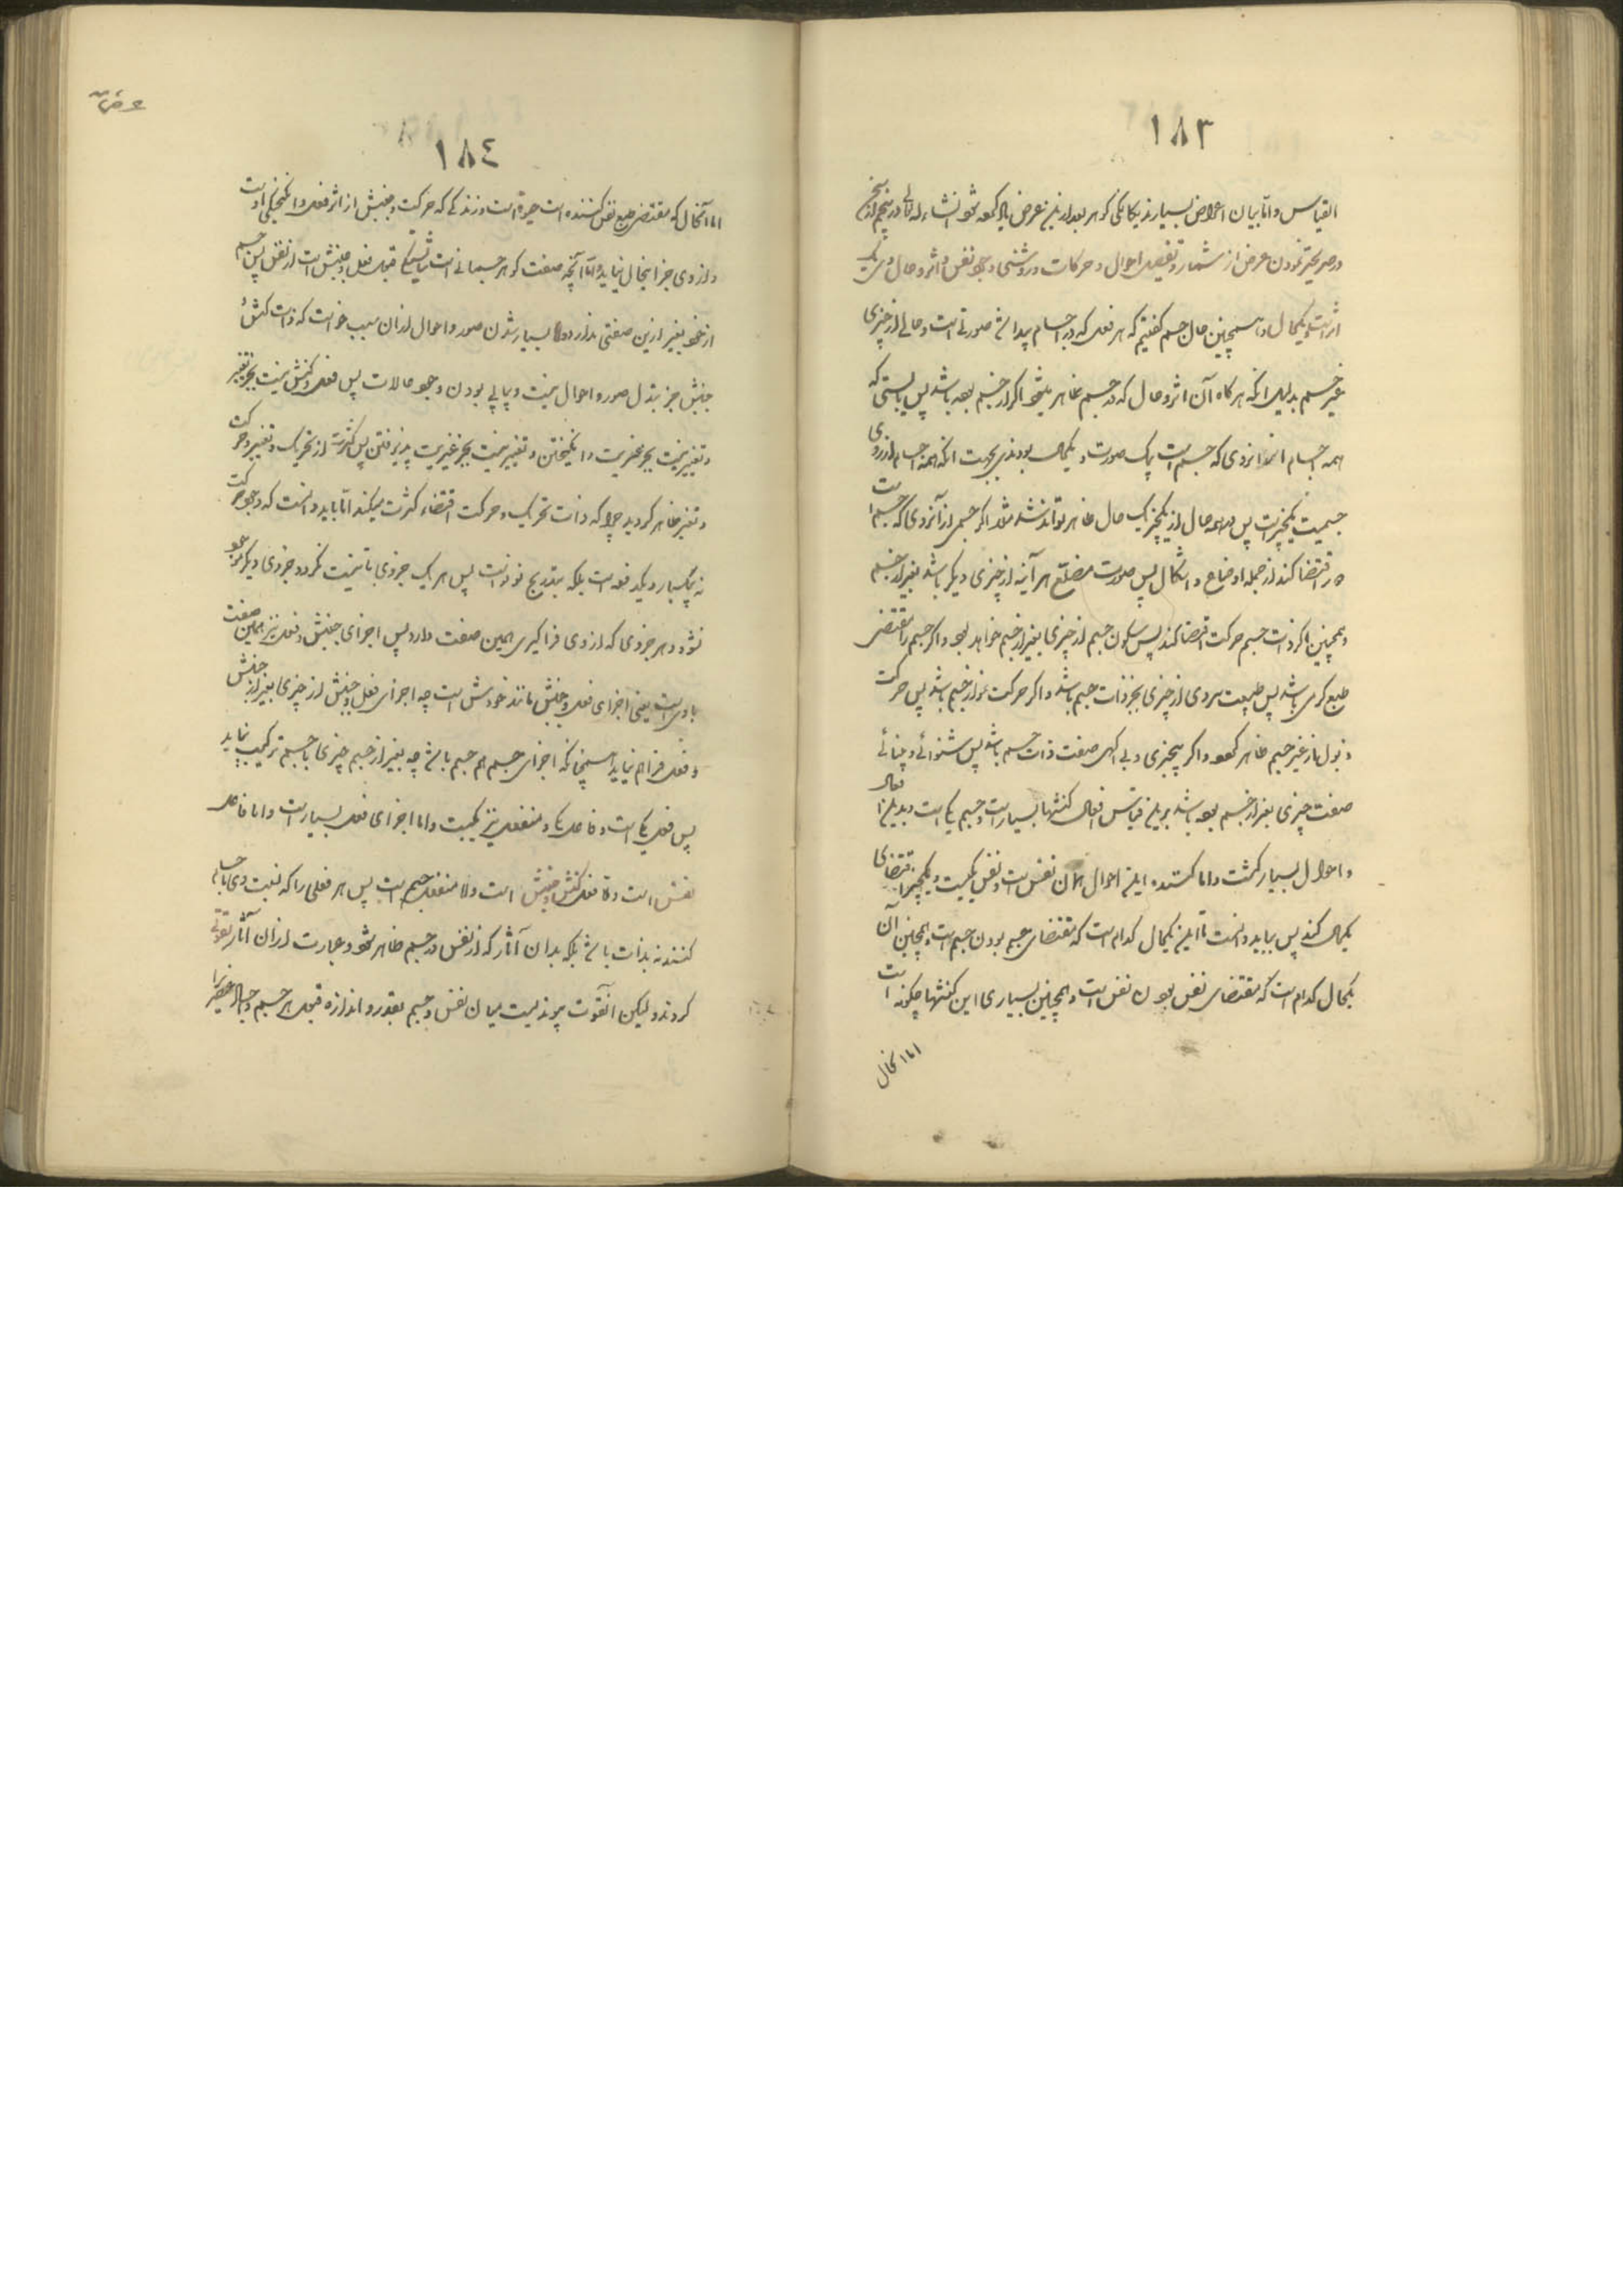 ١٨٣
القیاس و اما بیان اعراض بسیار نه یکانکی کوهر بعد ازین عرض یاد کرده شود انشاء الله
در صریحتر نمودن عرض از شمار و تفصیل احوال و حرکات و روشنی وجود نفس و اثر و حال وی
اثر است و یکحال و همچنین حال جسم گفتیم که هر فعل که در اجسام پیدا شد صورتی است و حالی از چیزی
غیر جسم بدلیل انکه هر کاه آن اثر و حال که در جسم ظاهر میشود اکر از جسم بوده باشد پس بایستی که
همه اجسام از انروی که جسم است یک صورت و یکحال بودندی بجهت انکه همه اجسام از روی
جسمیت یکچیز است پس همه حال از یکچیز یک حال ظاهر تواند شد مثلا اکر جسمی از آنروی که جسم است
اقتضا کند از جمله اوضاع و اشکال پس صورت مضلع هر آینه از چیزی دیکر باشد بغیر از جسم
و همچنین اکر ذات جسم حرکت اقتضا کند پس سکون جسم از چیزی بغیر از جسم خواهد بود و اکر جسم را مقتضی
طبع کرمی باشد پس طبیعت سردی از چیزی بجز ذات جسم باشد و اکر حرکت نمو از جسم باشد پس حرکت
ذبول باز غیر جسم ظاهر کردد و اکر بیخبری و بی اکهی صفت ذات جسم باشد پس شنوائی و بینائی
صفت چیزی بغیر از جسم بوده باشد برین قیاس افعال کنشها بسیار است و جسم یکی است و بدین افعال
و احوال بسیار کشت و اما کننده این احوال الآن نفس است و نفس یکیست و یکچیز اقتضای
یکحال کند پس بباید دانست تا این یکحال کدام است که مقتضای جسم بودن جسم است و همچنین آن
یکحال کدام است که مقتضای نفس بودن نفس است و همچنین بسیاری این کنشها چکونه است
اما انحال
١٨٤
اما آنحال که مقتضی طبع نفس کننده است حیوة است و زندکی که حرکت و جنبش از اثر فعل و انکیختکی اوست
و از وی جز اینحال نیاید و اما آنچه صفت کوهر جسمانی است شایستکی قبول فعل و جنبش است از نفس پس جسم
از خود بغیر ازین صفتی ندارد و اما بسیار شدن صور و احوال از ان سبب خواست که ذات کنش و
جنبش جز تبدل صور و احوال نیست و پیاپی بودن وجود حالات پس فعل و کنش نیست بجز تغیر
و تغییر نیست بجز محرکیت و انکیختن و تغیر نیست بجز غیریت پذیرفتن پس کثرت از تحریک و تغییر و حرکت
و تغیر ظاهر کردید چرا که ذات تحریک و حرکت اقتضاء کثرت میکند اما بباید دانست که وجود حرکت
نه بیکبار و یکدفعه است بلکه بتدریج نو نو است پس هر یک جزوی تا نیست نکردد جزوی دیکر موجود
نشود و هر جزوی که از وی فرا کیری همین صفت دارد پس اجزای جنبش و فعل نیز همین صفت
باوی است یعنی اجزای فعل و جنبش مانند خودش است چه اجزای فعل و جنبش از چیزی بغیر از جنبش
و فعل فراهم نیاید همچنانکه اجزای جسم هم جسم باشد چه بغیر از جسم چیزی با جسم ترکیب نیابد
پس فعل یکی است و فاعل یکی و منفعل نیز یکیست و اما اجزای فعل بسیار است و اما فاعل
نفس است و اما فعل کنش و جنبش است و اما منفعل جسم است پس هر فعلی را که نسبت وی باجسام
کنند نه بذات باشد بلکه بدان آثار که از نفس در جسم ظاهر شود و عبارت از ان آثار بقوتی
کردند و لیکن آنقوت پیوندیست میان نفس و جسم بقدر و اندازه قبول هر جسم و